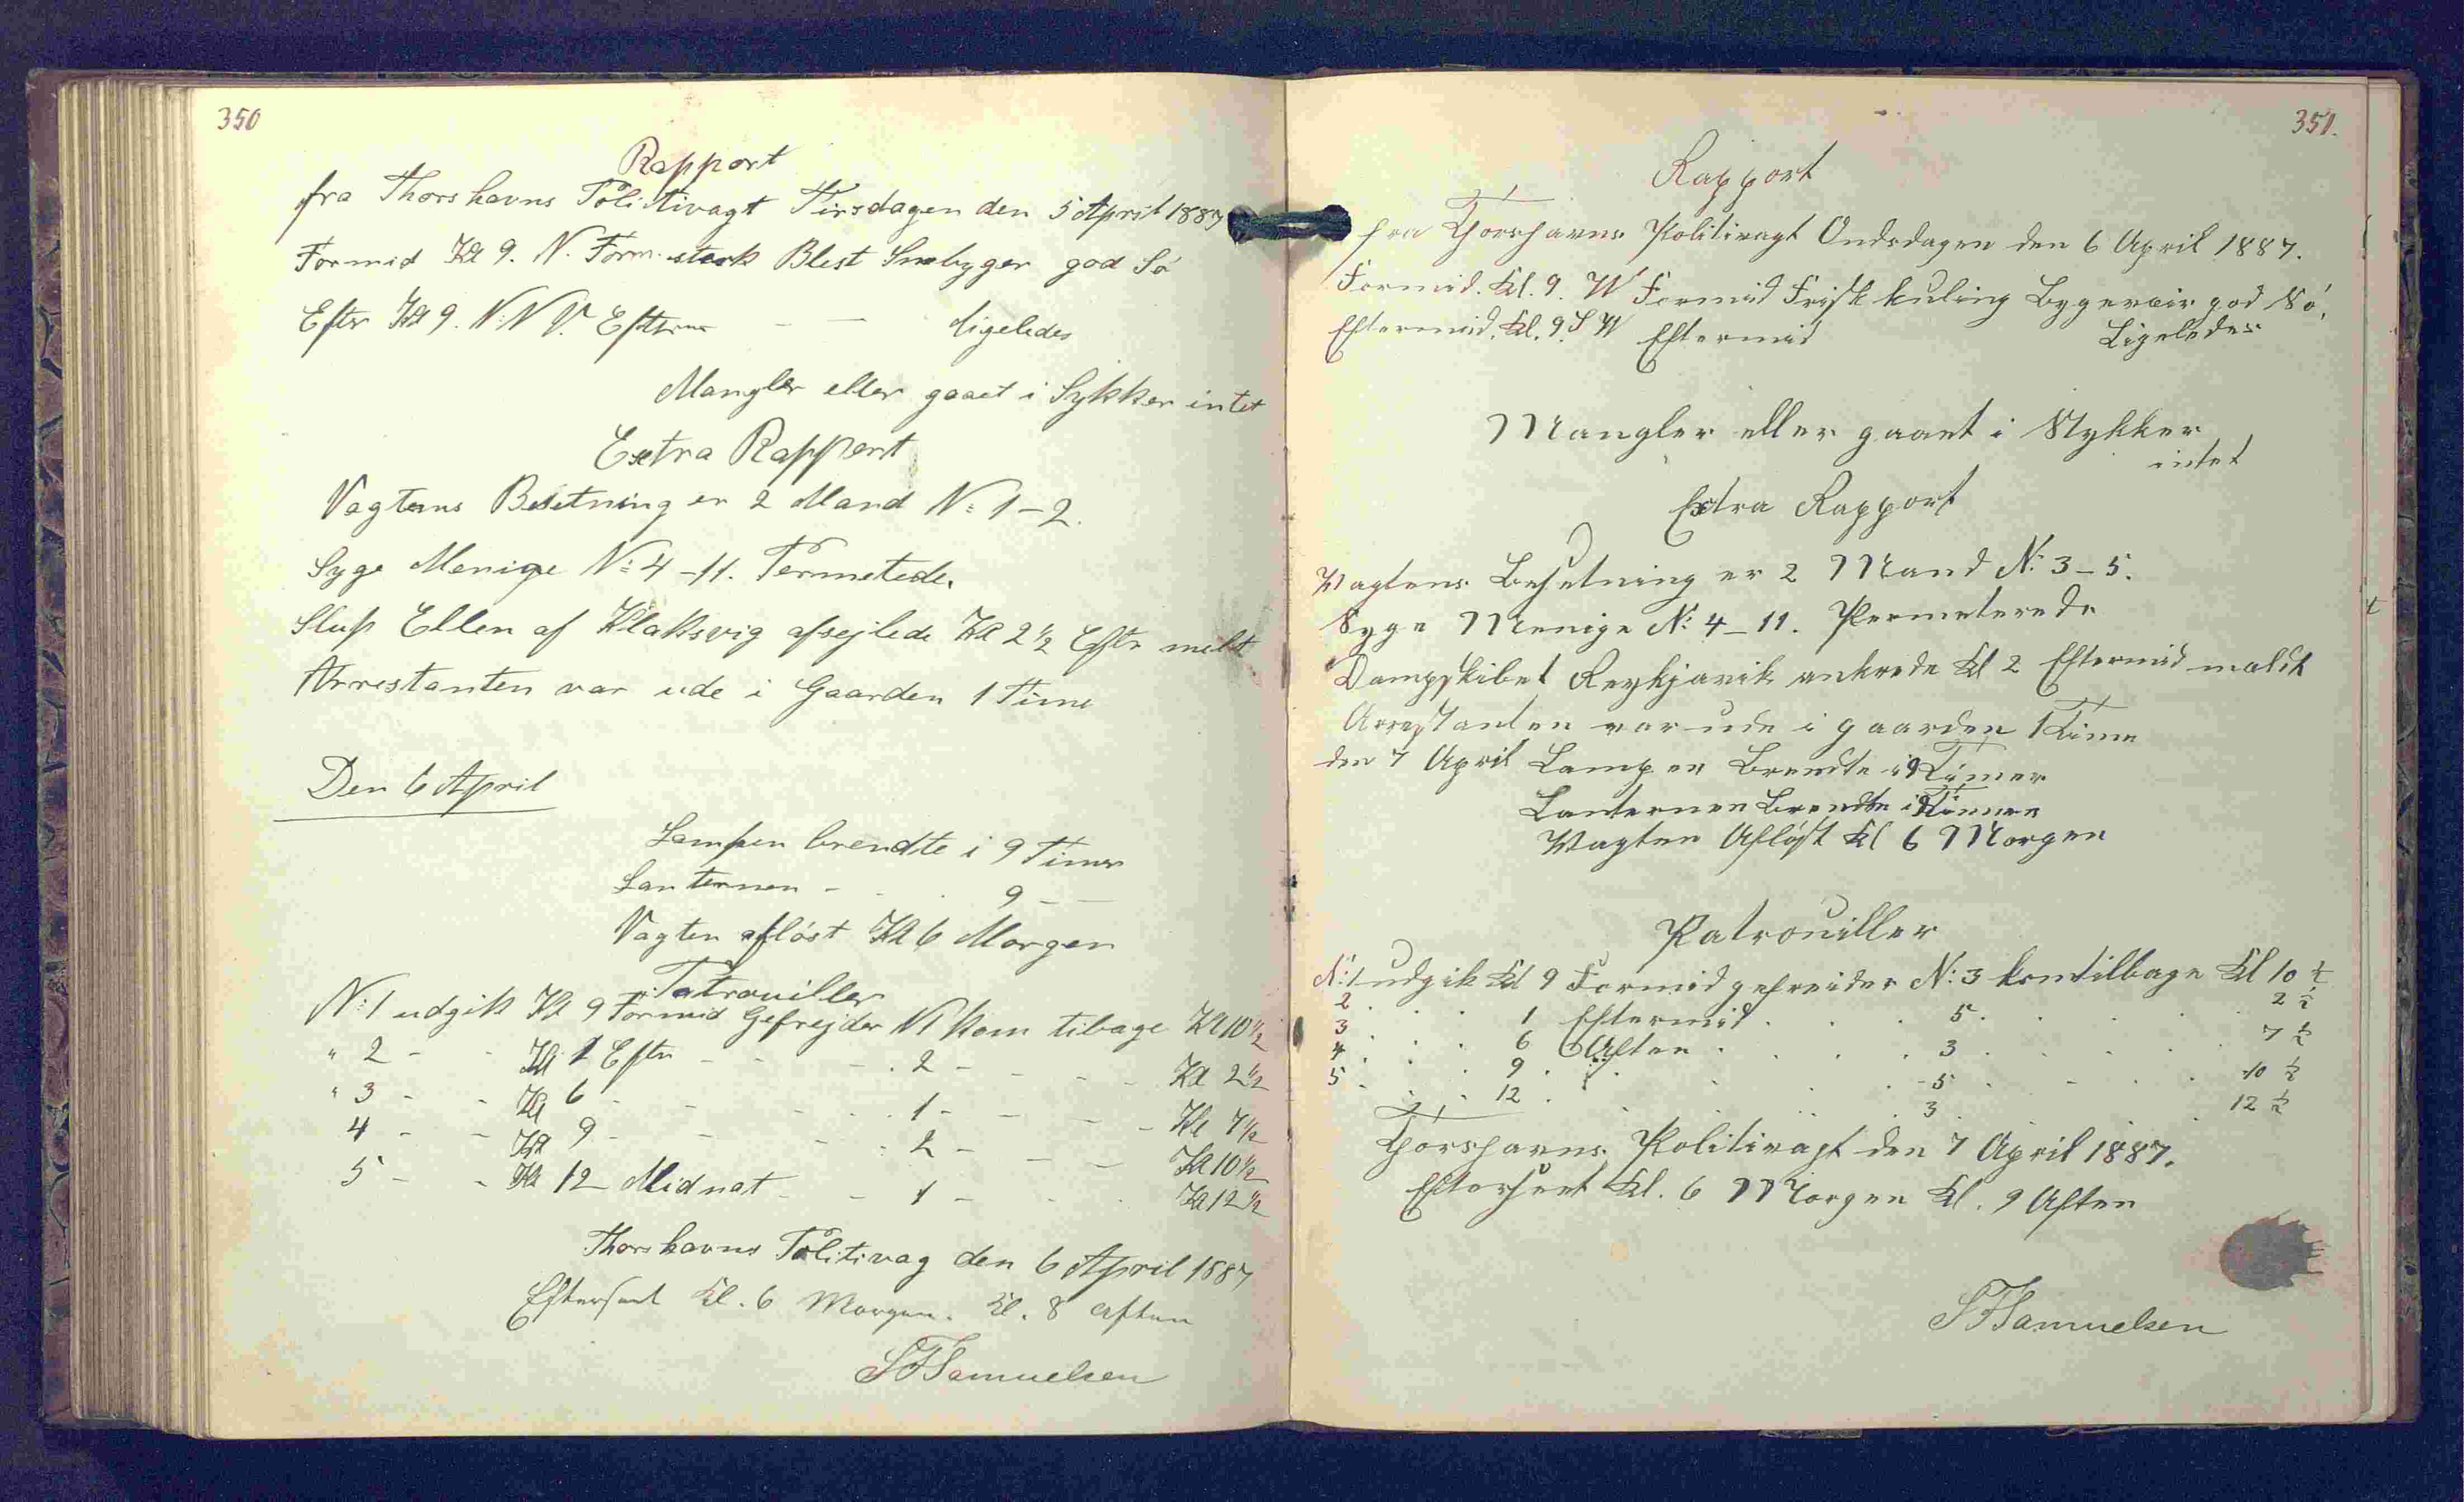 350
Rapport
fra Thorshavns Politivagt Tirsdagen den 5 April 1887
Formid Kl 9. N. Form. sterk Blest Snebyger god Sö
Efter Kl 9. N.N.V. Efterm — — ligeledes
Mangler eller gaaet i Sykker intet
Extra Rapport
Vagtens Besetning er 2 Mand N: 1-2.
Syge Menige N: 4-11. Permetede.
Slup Ellen af Klaksvig afsejlede Kl 2 1/2 Eftr meldt
Arrestanten var ude i Gaarden 1 Time
Den 6 April
Lampen brendte i 9 Timer
Lanternen - - 9 - -
Vagten aflöst Kl 6 Morgen
Patrouiller
N: 1 udgik Kl 9 Formid Gefrejder N 1 kom tilbage Kl 10 1/2
" 2 - - Kl 1 Eftr - - - 2 - - - - Kl 2 1/2
" 3 - - Kl 6 - - - - 1 - - - - Kl 7 1/2
4 - - Kl 9 - - - - 2 - - - Kl 10 1/2
5 - - Kl 12 Midnat - - 1 - - - Kl 12 1/2
Thorshavns Politivag den 6 April 1887
Efterseet Kl. 6 Morgen. Kl. 8 Aften
SFSamuelsen
351.
Rapport
fra Thorshavns Politivagt Ondsdagen den 6 April 1887.
Formid. Kl. 9. W Formid Frisk kuling Bygeveir god Sö,
Eftermid. Kl. 9. S W Eftermid Ligeledes
Mangler eller gaaet i Stykker
intet
Extra Rapport
Vagtens Besetning er 2 Mand N: 3-5.
Syge Menige N: 4-11. Permeterede
Dampskibet Reykjavik ankrede Kl 2 Eftermid meldt
Arrestanten var ude i gaarden 1 Time
den 7 April Lampen Brendte i 9 Timer
Lanternen Brendte i 9 Timer
Vagten Aflöst Kl 6 Morgen
Patrouiller
N: 1 udgik Kl 9 Formid gefreider N: 3 kom tilbage Kl 10 1/2
2 . . . 1 Eftermid . . . 5 . . . . 2 1/2
3 . . . 6 Aften . . . 3 . . . . 7 1/2
4 . . . 9 . . . . 5 . . . . 10 1/2
5 . . . 12 . . . . 3 . . . . 12 1/2
Thorshavns Politivagt den 7 April 1887.
Efterseet Kl. 6 Morgen Kl. 9 Aften
SFSamuelsen